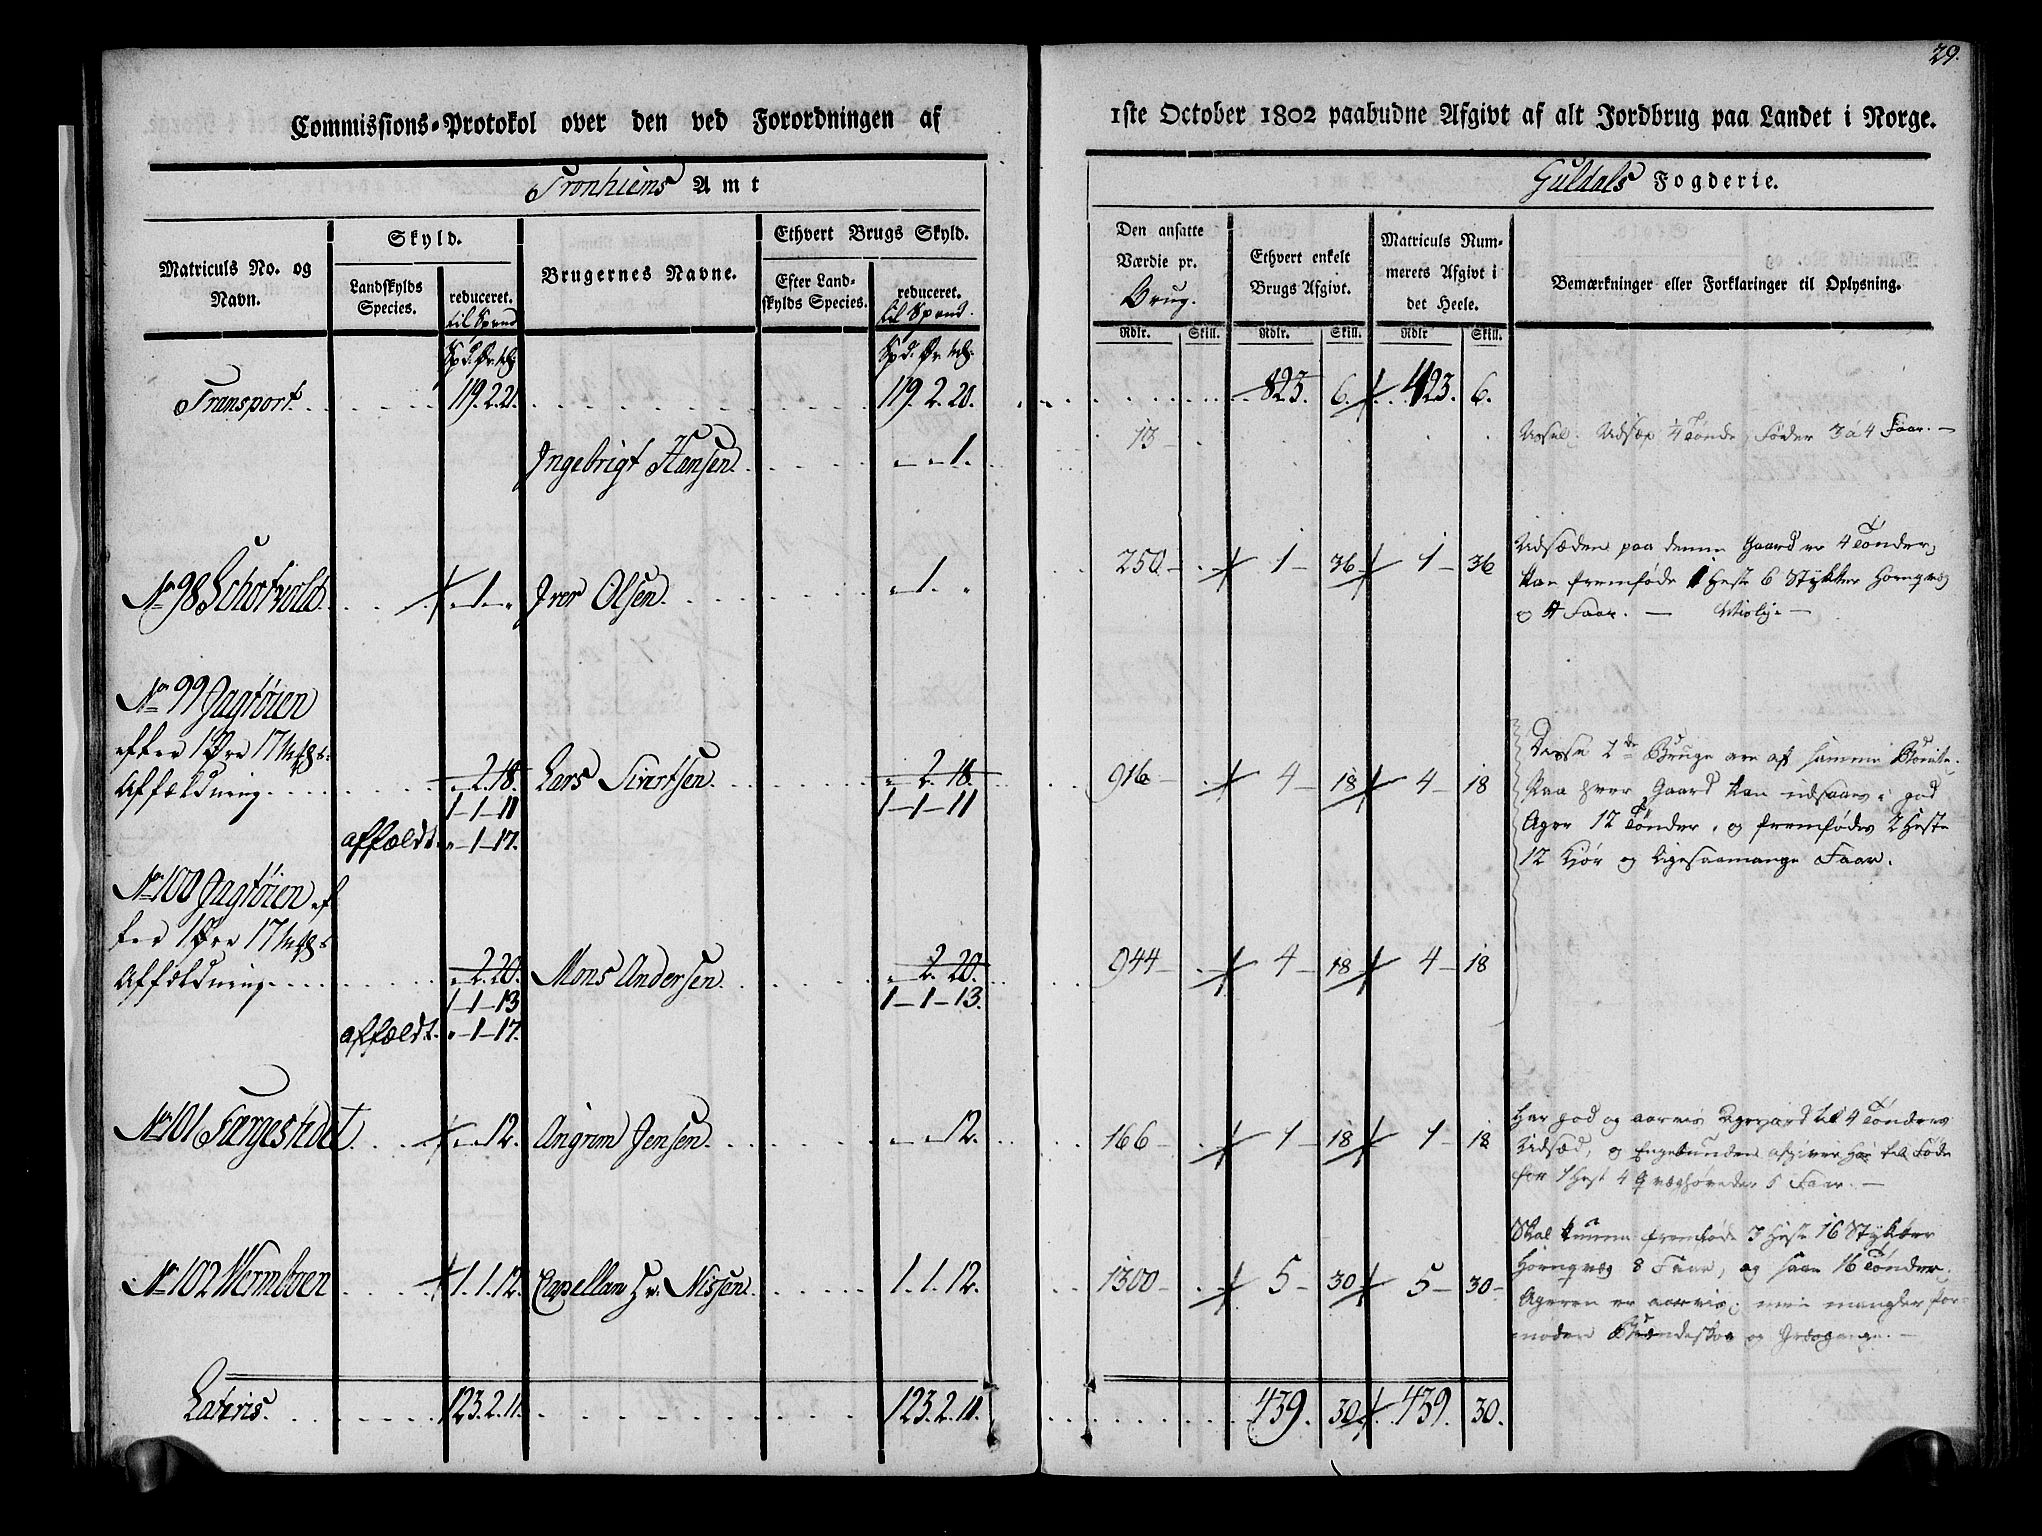 29.
Commissions-Protokol over den ved Forordningen af
1ste October 1802 paabudne Afgivt af alt Jordbrug paa Landet i Norge.
Tronhiems Amt
Guldals Fogderie.
Matriculs No. og Navn.
Skyld.
Landskylds Species.
reduceret. til Spand
Brugernes Navne.
Ethvert Brugs Skyld.
Efter Landskylds Species.
reduceret. til Spand.
Den ansatte Værdie pr. Brug.
Ethvert enkelt Brugs Afgivt.
Matriculs Nummerets Afgivt i det Heele.
Bemærkninger eller Forklaringer til Oplysning.
Rdlr. Skill. Rdlr. Skill. Rdlr Skill.
Transport. 119. 2. 21. 119. 2. 20. 423. 6. 423. 6.
Ingebrigt Hansen. " " 1. 13 Udsæd 1/4 Tønde, Føder 3 à 4 Faar.
No 98 Schotvold. " 1 " Iver Olsen. " 1. " 250 1 36 1 36
Udsæden paa denne Gaard er 4 Tønder,
kan fremføde 1 Hest 6 Stykker Hornqvæg
og 4 Faar. —
No 99 Jagtøien
efter 1 Øre 17 Mkgs:
Affældning. " 2. 18. Lars Sivertsen. " 2. 18. 916 4 18 4 18
1-1-11 1-1-11
affældt. " 1-17.
Disse 2de Bruge ere af samme
Paa hver Gaard kan udsaaes i god
Ager 12 Tønder, og fremfødes 2 Heste
12 Kjør og ligesaamange Faar.
No 100 Jagtøien ef
ter 1 Øre 17 Mkgs
Affældning. " 2. 20. Mons Andersen. " 2. 20. 944 4 18 4 18
1-1-13 1-1-13.
affældt. " 1-17.
No 101 Fargestdet " " 12. Angrim Jensen. " " 12. 166 1 18 1 18
Har god og aarvis Agerjord til 4 Tønders
Udsæd, og Engebunden afgiver Høe til Føde
for 1 Hest 4 Qvæghøveder 5 Faar. —
No 102 Wermboen 1. 1. 12. Capellan Hr. Nissen. 1. 1. 12. 1300 5 30 5 30
Skal kunne fremføde 3 Heste 16 Stykker
Hornqvæg 8 Faar, og saae 16 Tønder.
Ageren er aarvis; men mangler for-
nøden Brændeskov og Græsgang. —
Lateris. 123. 2. 11. 123. 2. 11. 439. 30. 439. 30.